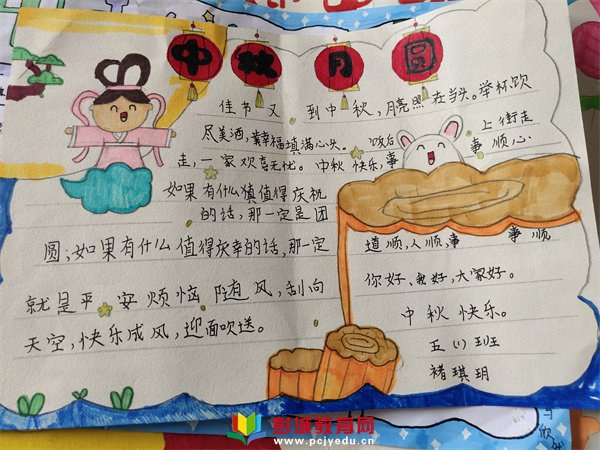 中秋月圆
佳节又到中秋，月亮照在当头。举杯饮
尽美酒，幸福填满心头。饭后上街走
走，一家欢喜无忧。中秋快乐，事事顺心
如果有什么值值得庆祝
的话，那一定是团
圆；如果有什么值得庆幸的话，那一定
就是平安烦恼随风，刮向
天空，快乐成风，迎面吹送。
道顺，人顺，事事顺
你好，我好，大家好。
中秋快乐。
五（1）班
褚琪玥
彭城教育网
www.pcjyedu.cn